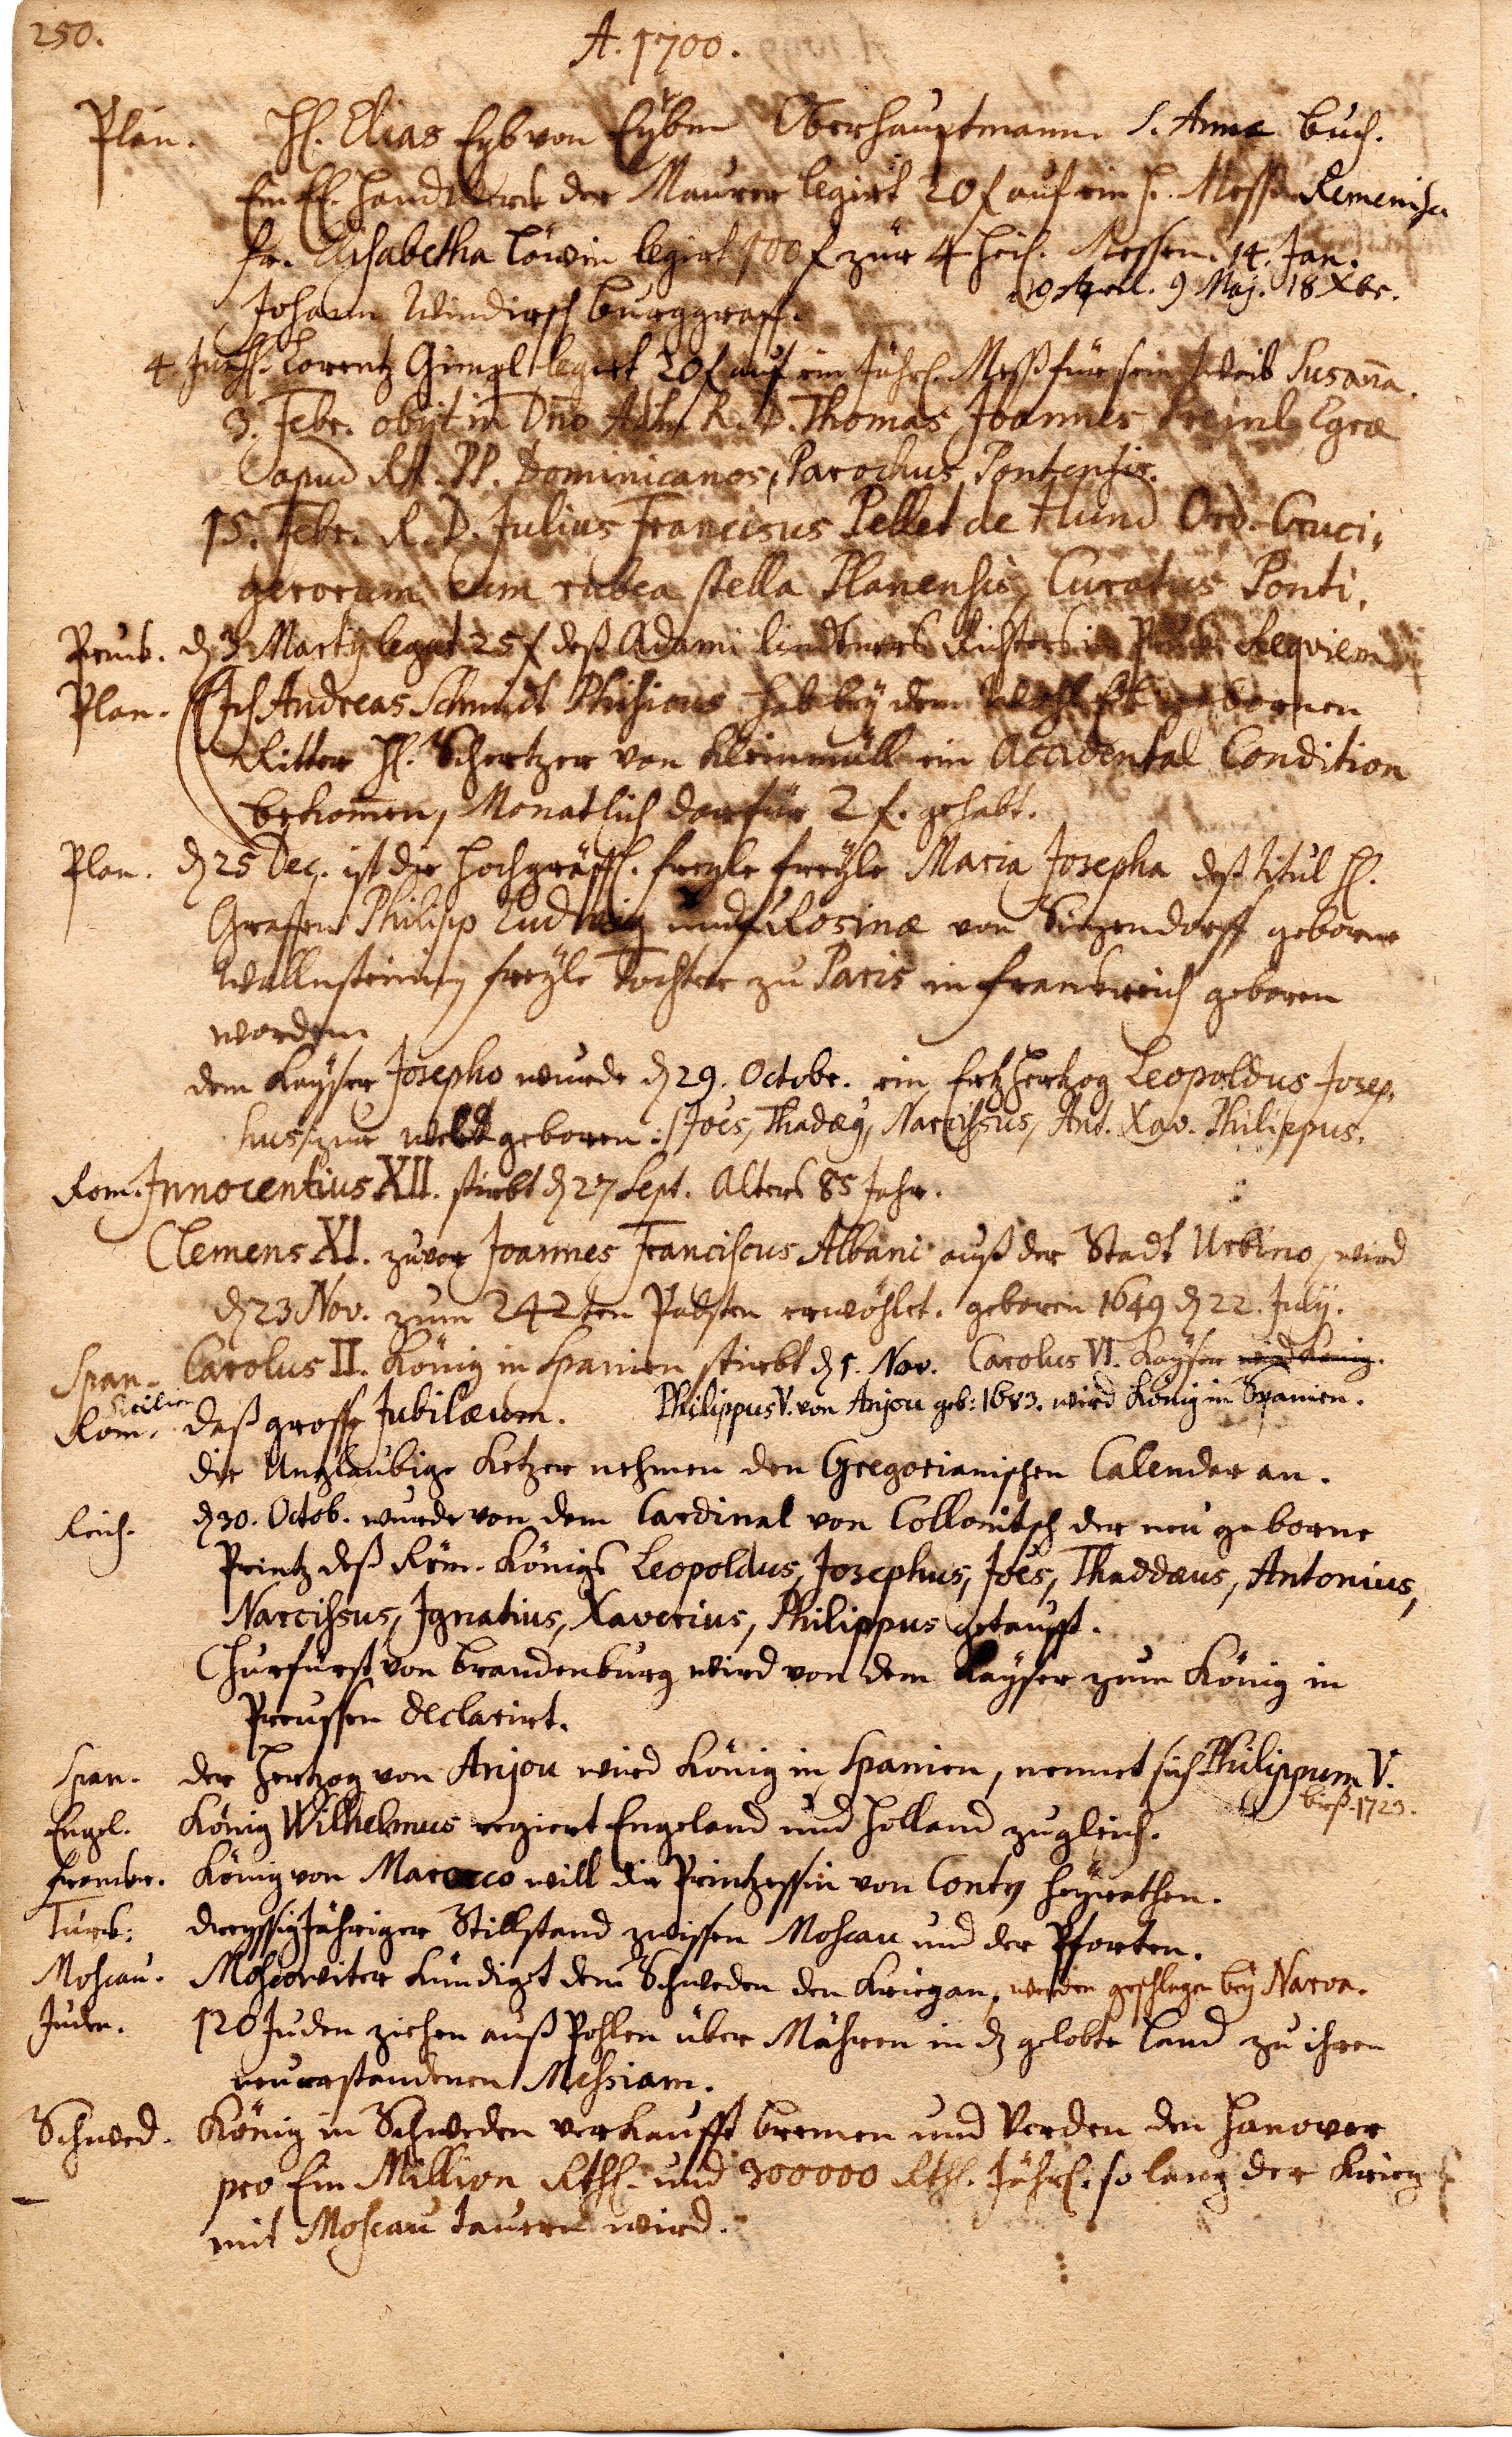 250.
A. 1700.
Plan. H. Elias Eyb von Eyben Oberhauptmann S. Annæ Buch.
Ein E. Handtwerck der Maurer legirt 20 f auf ein H. Messe Remenisc
Fr. Elisabetha Löwin legirt 100 f zur 4 heil. Messen. 14. Jan.
19 April. 9 Maj. 18 Xbr.
Johann Windirsch Burggraff.
4 Jul. H. Lorentz Gimpl legirt 20 f auf ein Jährl. Meß für sein Weib Susana.
3. Febr. obijt in Dno Adm R. D. Thomas Joannes Preinl Egræ
apud RR. PP. Dominicanos, Parochus Pontensis.
15. Febr. R. D. Julius Francisus Pellet de Hund Ord. Cruci,
gerorum cum rubea stella Planensis, Curatus Ponti.
Pruck. d 3 Martij legat 25 f deß Adami Lindtners Richters in Pruck. Requiem
Plan. Ich Andreas Schmidt Phisicus hab bey dem Wohl gebornen
Ritter H. Schertzer von Kleinmüll ein Accidental Condition
bekomen, Monatlich darfür 2 f. gehabt.
Plan. d 25 Dec. ist die Hochgräffl. freyle freyle Maria Josepha deß titul H.
Graffens Philipp Ludwig und Rosinæ von Sinzendorff geborne
Wallnsteining freyle Tochter zu Paris in Franckreich geboren
worden
dem Kayser Josepho wurde d 29. Octobr. ein Ertzhertzog Leopoldus Josep,
hus, zur welt geboren: Joes, Thadæy, Narcissus, Ant. Xav. Philippus.
Rom. Innocentius XII. stirbt d 27 Sept. Alters 85 Jahr.
Clemens XI. zuvor Joannes Franciscus Albani auß der Stadt Urbino, wird
d 23 Nov. zum 242ten Pabsten erwöhlet. geboren 1649 d 22. July.
Span. Carolus II. König in Spanien stirbt d 1. Nov. Carolus VI. Kayser wird König.
Sicilien
Rom. daß grosse Jubilæum. Philippus V. von Anjou geb: 1683. wird König in Spanien.
die Unglaubige Ketzer nehmen den Gregorianischen Calender an.
Reich. d 30. Octob. wurde von dem Cardinal von Collonitsch der neu geborne
Printz deß Röm. Königs Leopoldus, Josephus, Joes, Thaddæus, Antonius,
Narcissus, Ignatius, Xaverius, Philippus getaufft.
Churfürst von Brandenburg wird von dem Kayser zum König in
Preussen declarirt.
Span. der Hertzog von Anjou wird König in Spanien, nennet sich Philippum V.
biß 1723.
Engel. König Wilhelmus regiert Engeland und Holland zugleich.
Franckr. König von Marocco will die Printzessin von Conty heyrathen.
Türck: dreyssigJähriger Stillstand zwissen Moscau und der Pforten.
Moscau. Moscoviter Kündigt dem Schweden den Krieg an, werden geschlagen bey Narva.
Juden. 120 Juden ziehen auß Pohlen über Mähren in d gelobte Land zu ihren
neu erstandenen Messiam.
Schwed. König in Schweden verkaufft Bremen und Verden den Hanover
pro Ein Million Rthl. und 300000 Rthl. Jährl. so lang der Krieg
mit Moscau tauren wird.